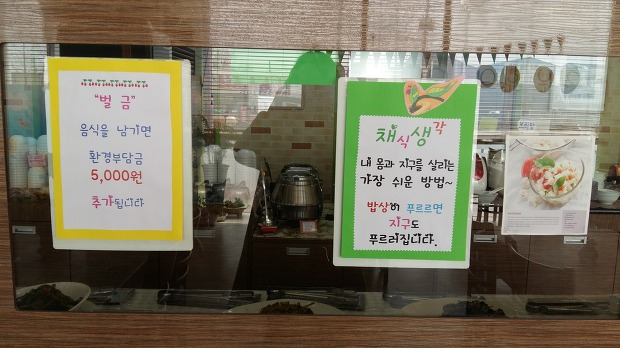 "벌 금"
음식을 남기면
환경부담금
5,000원
추가됩니다
채식생각
내 몸과 지구를 살리는
가장 쉬운 방법~
밥상이 푸르르면
지구도
푸르러집니다.